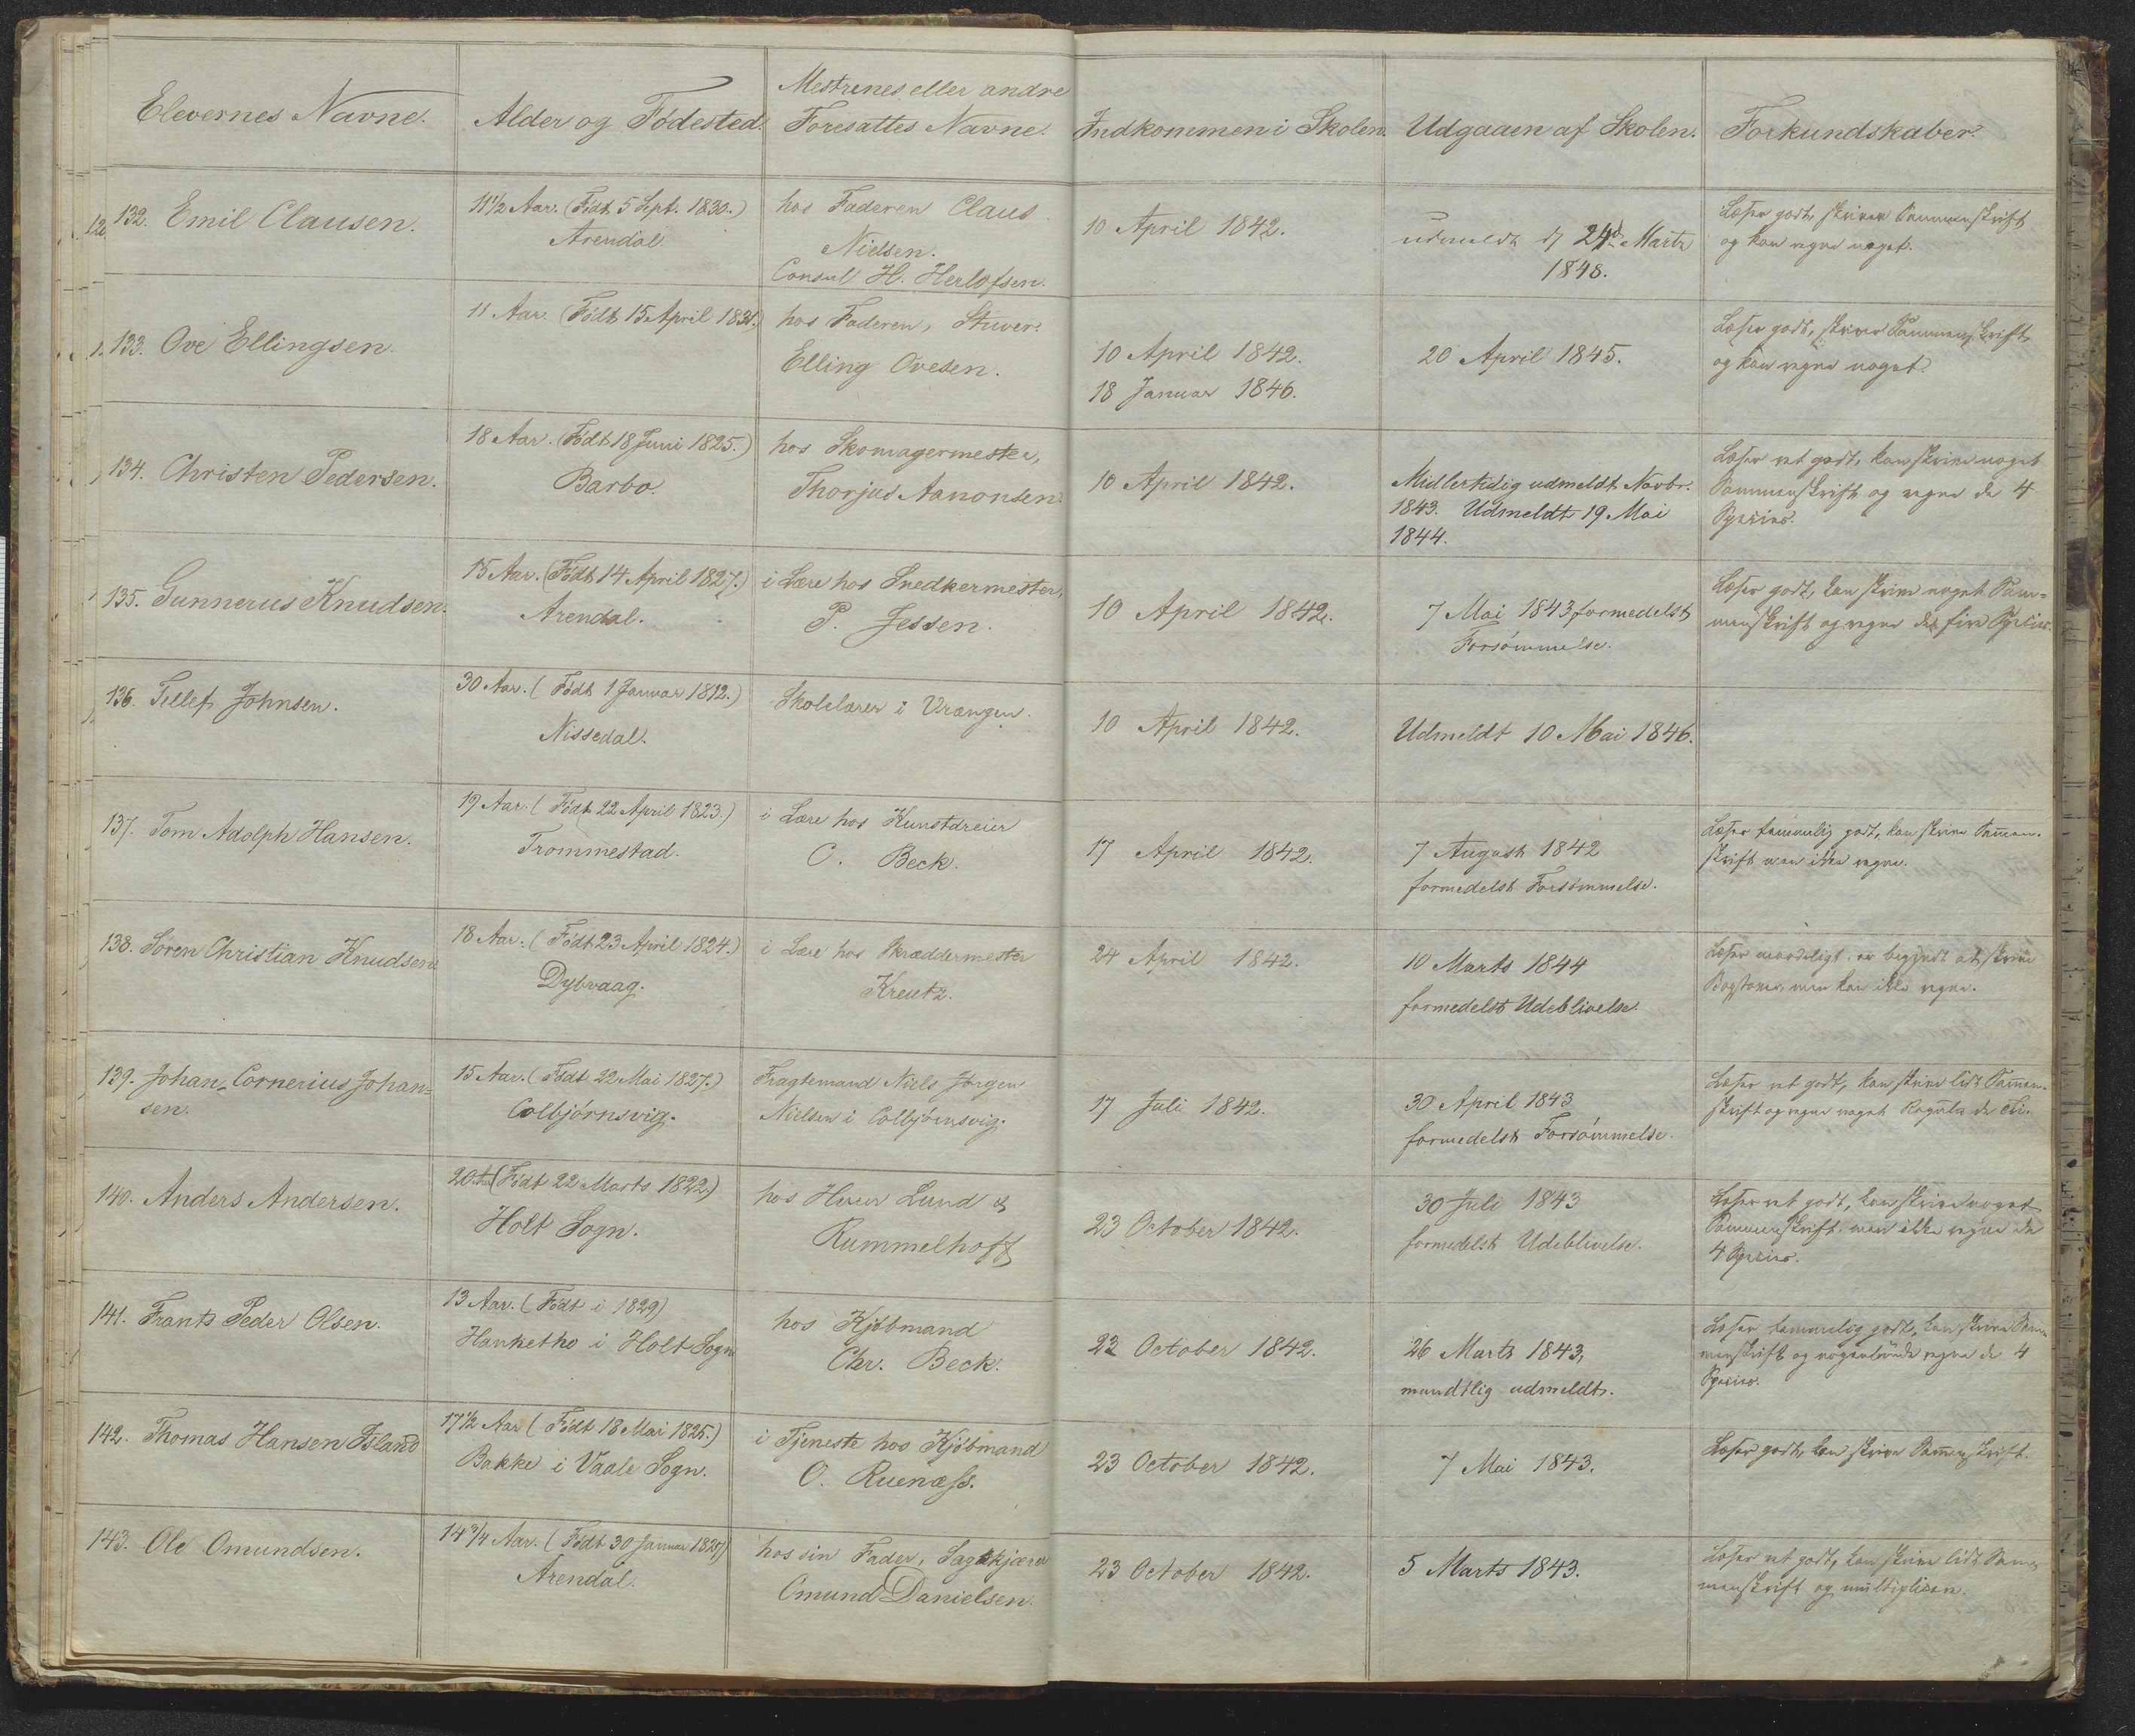 Elevernes Navne.
Alder og Fødested.
Mestrenes eller andre
Foresattes Navne.
Indkommen i Skolen.
Udgaaen af Skolen.
Forkundskaber.
132. Emil Clausen.
11 1/2 Aar. (Født 5 Sept. 1830.)
Arendal.
hos Faderen Claus
Nielsen.
Consul H. Herlofsen.
10 April 1842.
udmeldt d 24d Marts
1848.
Læser godt, skriver Sammenskrift
og kan regne noget.
133. Ove Ellingsen.
11 Aar. (Født 15 April 1831.)
hos Faderen, Stuver
Elling Ovesen.
10 April 1842.
18 Januar 1846.
20 April 1845.
Læser godt, skriver Sammenskrift
og kan regne noget.
134. Christen Pedersen.
18 Aar. (Født 18 Juni 1825.)
Barbo.
hos Skomagermester,
Thorjus Aanonsen.
10 April 1842.
Midlertidig udmeldt Novbr.
1843. Udmeldt 19 Mai
1844.
Læser ret godt, kan skrive noget
Sammenskrift og regne de 4
Species.
135. Gunnerus Knudsen.
15 Aar. (Født 14 April 1827.)
Arendal.
i Lære hos Snedkermester,
P. Jessen.
10 April 1842.
7 Mai 1843 formedelst
Forsømmelse.
Læser godt, kan skrive noget Sam-
menskrift og regne de fire Species.
136. Tellef Johnsen.
30 Aar. (Født 1 Januar 1812.)
Nissedal.
Skolelærer i Vrængen.
10 April 1842.
Udmeldt 10 Mai 1846.
137. Tom Adolph Hansen.
19 Aar. (Født 22 April 1823.)
Trommestad.
i Lære hos Kunstdreier
O. Beck.
17 April 1842.
7 August 1842
formedelst Forsømmelse.
Læser temmelig godt, kan skrive Sammen-
skrift men ikke regne.
138. Søren Christian Knudsen
18 Aar. (Født 23 April 1824.)
Dybvaag.
i Lære hos Skræddermester
Kreutz.
24 April 1842.
10 Marts 1844
formedelst Udeblivelse.
Læser maadeligt, er begyndt at skrive
Bogstaver, men kan ikke regne.
139. Johan Cornerius Johan-
sen.
15 Aar. (Født 22 Mai 1827.)
Colbjørnsvig.
Fragtemand Niels Jørgen
Nielsen i Colbjørnsvig.
17 Juli 1842.
30 April 1843
formedelst Forsømmelse.
Læser ret godt, kan skrive lidt Sammen-
skrift og regne noget Regula de Tri.
140. Anders Andersen.
20 Aar (Født 22 Marts 1822.)
Holt Sogn.
hos Herrer Lund &
Rummelhoff
23 October 1842.
30 Juli 1843
formedelst Udeblivelse.
Læser ret godt, kan skrive noget
Sammenskrift, men ikke regne de
4 Species.
141. Frants Peder Olsen.
13 Aar. (Født i 1829)
Hanketho i Holt Sogn
hos Kjøbmand
Chr. Beck.
23 October 1842.
26 Marts 1843,
mundtlig udmeldt.
Læser temmelig godt, kan skrive Sam-
menskrift og nogenlunde regne de 4
Species.
142. Thomas Hansen Island
17 1/2 Aar (Født 18 Mai 1825.)
Bakke i Vaale Sogn.
i Tjeneste hos Kjøbmand
O. Ruenæss.
23 October 1842.
7 Mai 1843.
Læser godt, kan skrive Sammenskrift.
143. Ole Omundsen.
14 3/4 Aar. (Født 30 Januar 1827)
Arendal.
hos sin Fader, Sagskjærer
Omund Danielsen.
23 October 1842.
5 Marts 1843.
Læser ret godt, kan skrive lidt Sam-
menskrift og multiplicere.